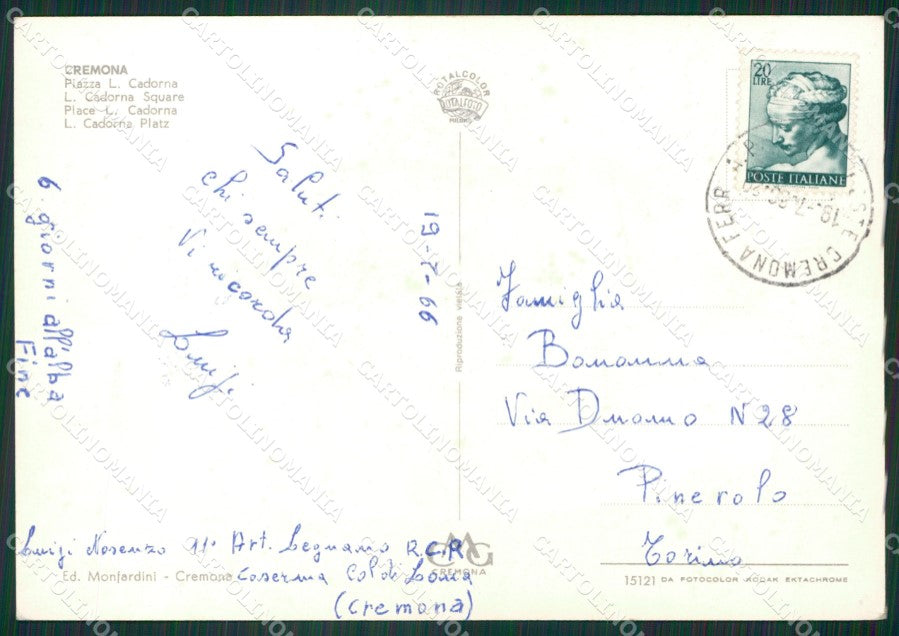 CREMONA
Piazza L. Cadorna
L. Cadorna Square
Place L. Cadorna
L. Cadorna Platz
ROTALCOLOR
ROTALFOTO
MILANO
20
LIRE
POSTE ITALIANE
CREMONA FERR
Saluti
chi sempre
Vi ricorda
Luigi
19-7-66
6 giorni all'alba
Fine
Riproduzione vietata
Famiglia
Bonanna
Via Duomo N 28
Pinerolo
Torino
Luigi Nosenzo 11° Art. Legnano R.C.R
Caserma Col di Lana
(Cremona)
Ed. Monfardini - Cremona
CREMONA
15121 DA FOTOCOLOR KODAK EKTACHROME
CARTOLINOMANIA